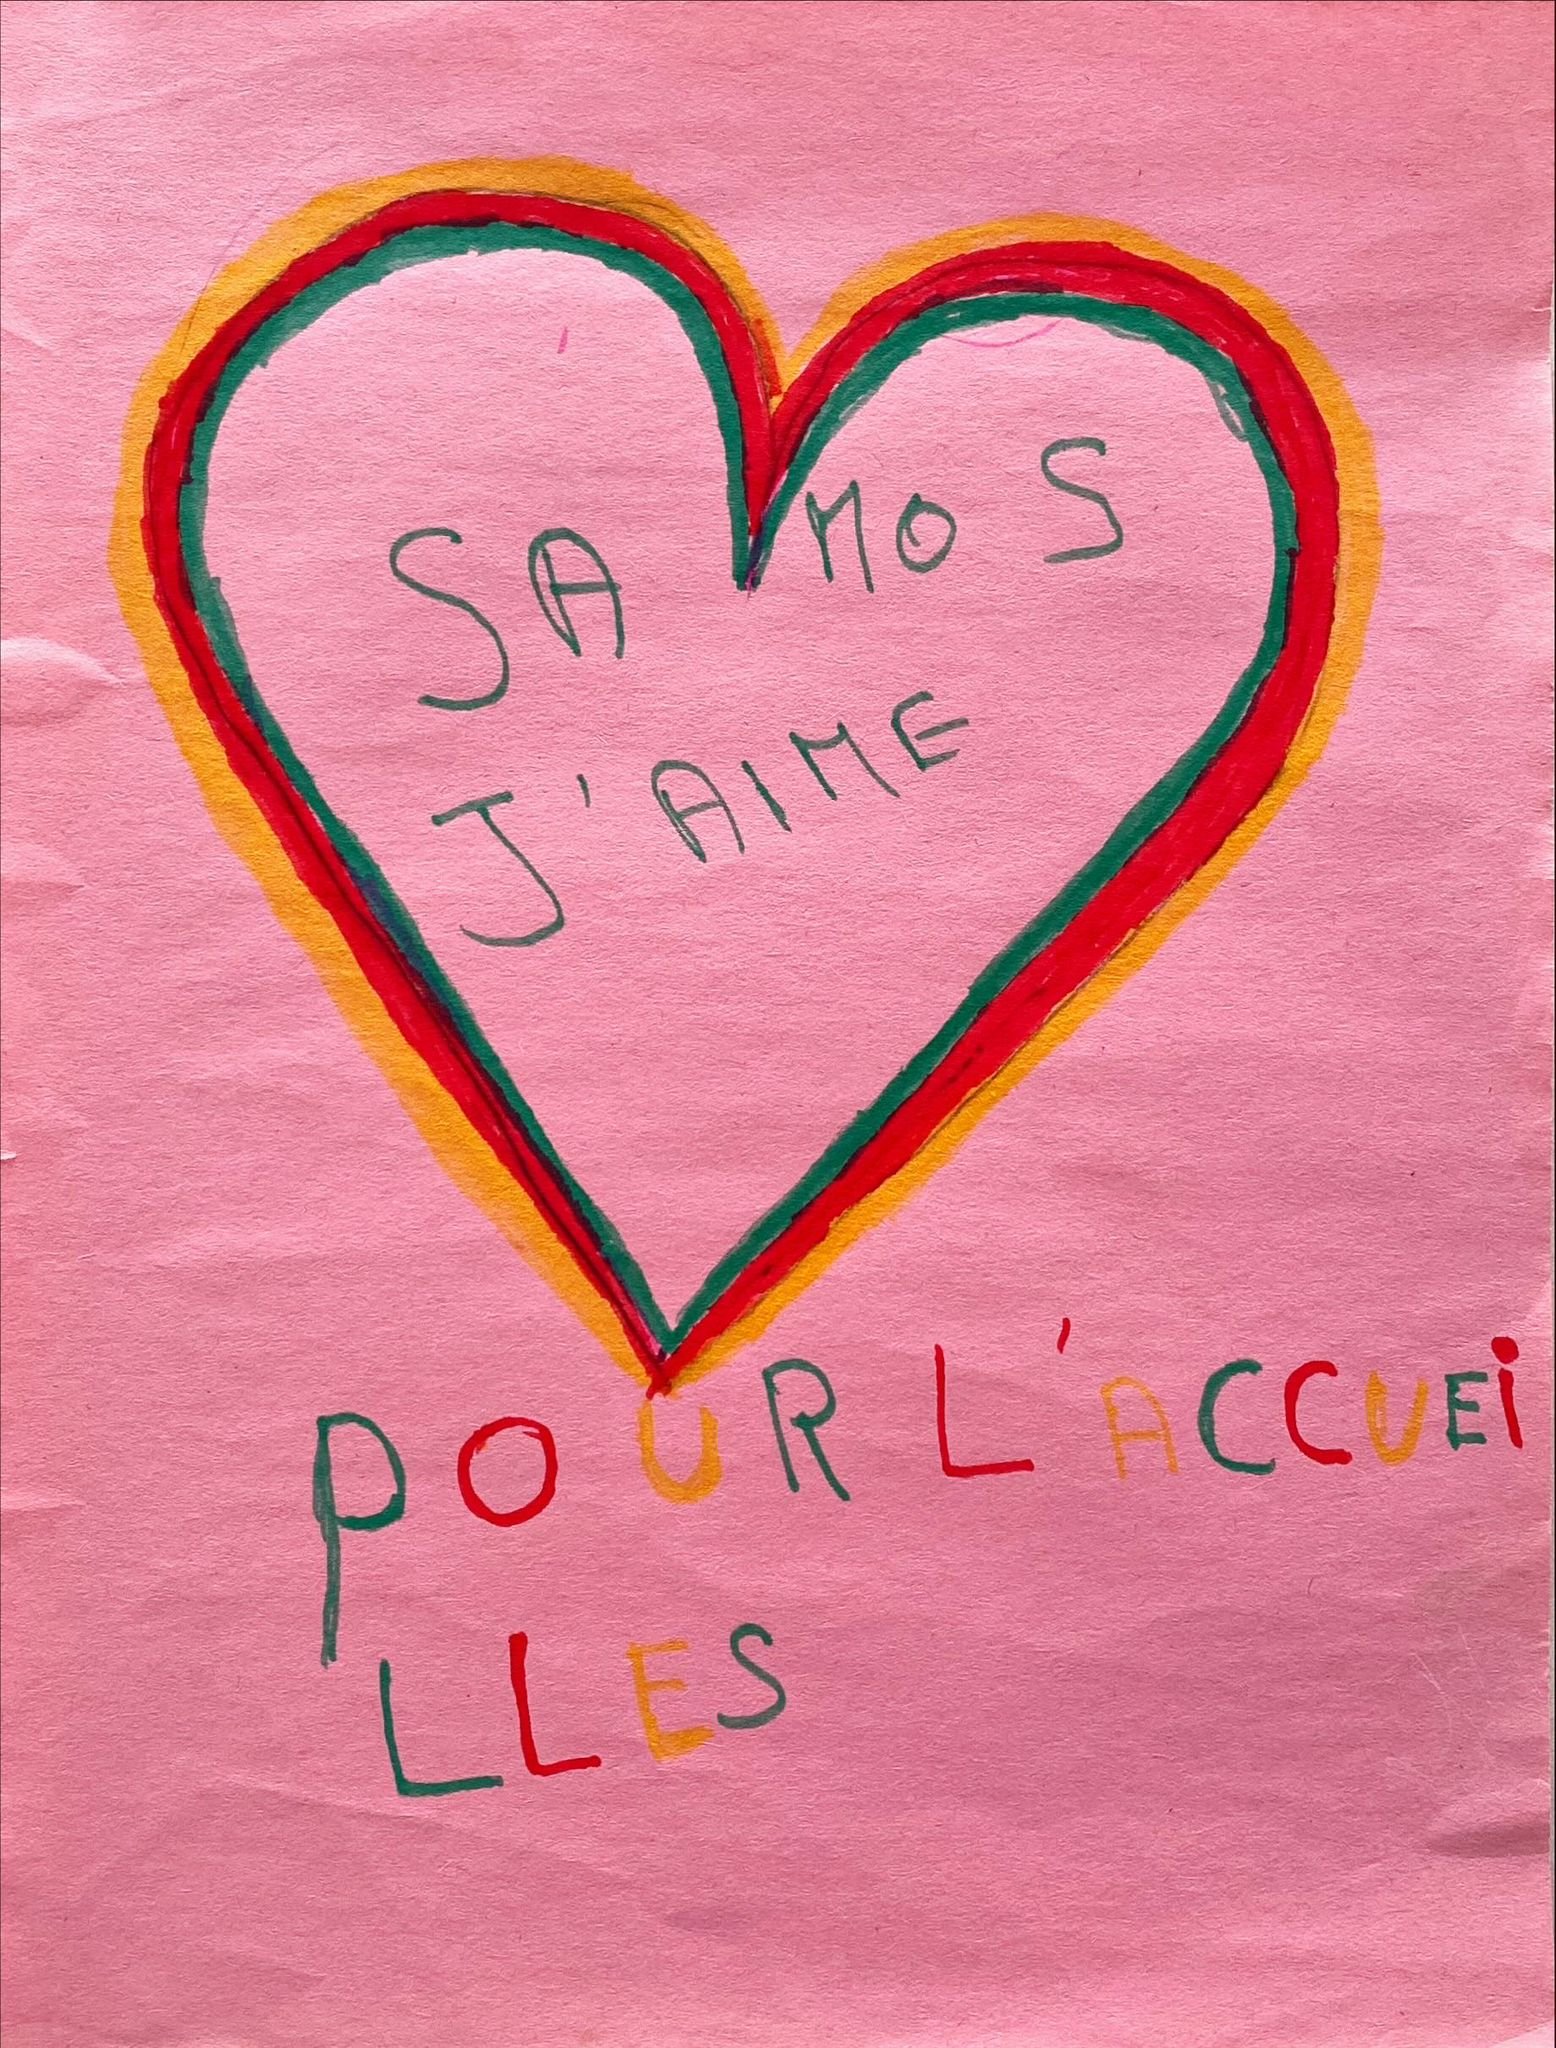 SAMOS
J'AIME
POUR L'ACCUEI
LLES